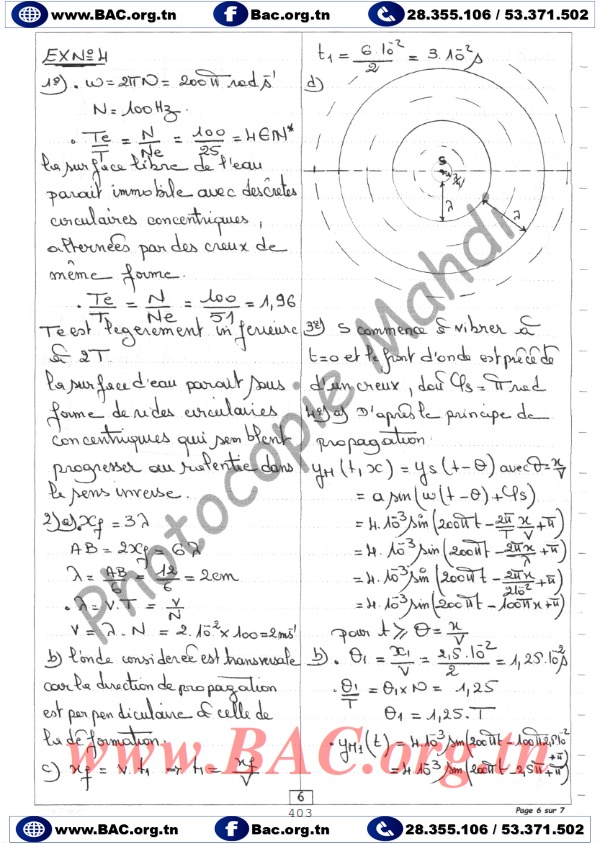 www.BAC.org.tn Bac.org.tn 28.355.106 / 53.371.502
EXNº4
1º) • ω = 2πN = 200π rad s⁻¹
N = 100Hz
• Te/T = N/Ne = 100/25 = 4 ∈ ℕ*
la surface libre de l'eau
parait immobile avec des crêtes
circulaires concentriques,
alternées par des creux de
même forme.
• Te/T = N/Ne = 100/51 = 1,96
Te est legerement inferieure
à 2T
la surface d'eau parait sous
forme de rides circulaires
concentriques qui semblent
progresser au ralentie dans
le sens inverse.
2) a) • xf = 3λ
AB = 2xf = 6λ
λ = AB/6 = 12/6 = 2cm
• λ = V.T = V/N
V = λ.N = 2.10⁻² x 100 = 2ms⁻¹
b) l'onde considerée est transversale
car la direction de propagation
est perpendiculaire à celle de
la déformation.
c) xf = V.t1 → t1 = xf/V
t1 = 6.10⁻²/2 = 3.10⁻² s
d)
S
λ
λ
3º) S commence à vibrer à
t=0 et le front d'onde est précédé
d'un creux, d'où φs = π rad
4º) a) D'après le principe de
propagation.
yM(t,x) = ys(t-θ) avec θ = x/V
= a sin(ω(t-θ)+φs)
= 4.10⁻³ sin(200πt - 2π/T x/V + π)
= 4.10⁻³ sin(200πt - 2πx/λ + π)
= 4.10⁻³ sin(200πt - 2πx/2.10⁻² + π)
= 4.10⁻³ sin(200πt - 100πx + π)
pour t ⩾ θ = x/V
b) • θ1 = x1/V = 2,5.10⁻²/2 = 1,25.10⁻² s
• θ1/T = θ1 x N = 1,25
θ1 = 1,25.T
• yM1(t) = 4.10⁻³ sin(200πt - 100π2,5.10⁻² + π)
= 4.10⁻³ sin(200πt - 2,5π + π)
Photocopie Mahdi
www.BAC.org.tn
6
403
Page 6 sur 7
www.BAC.org.tn Bac.org.tn 28.355.106 / 53.371.502